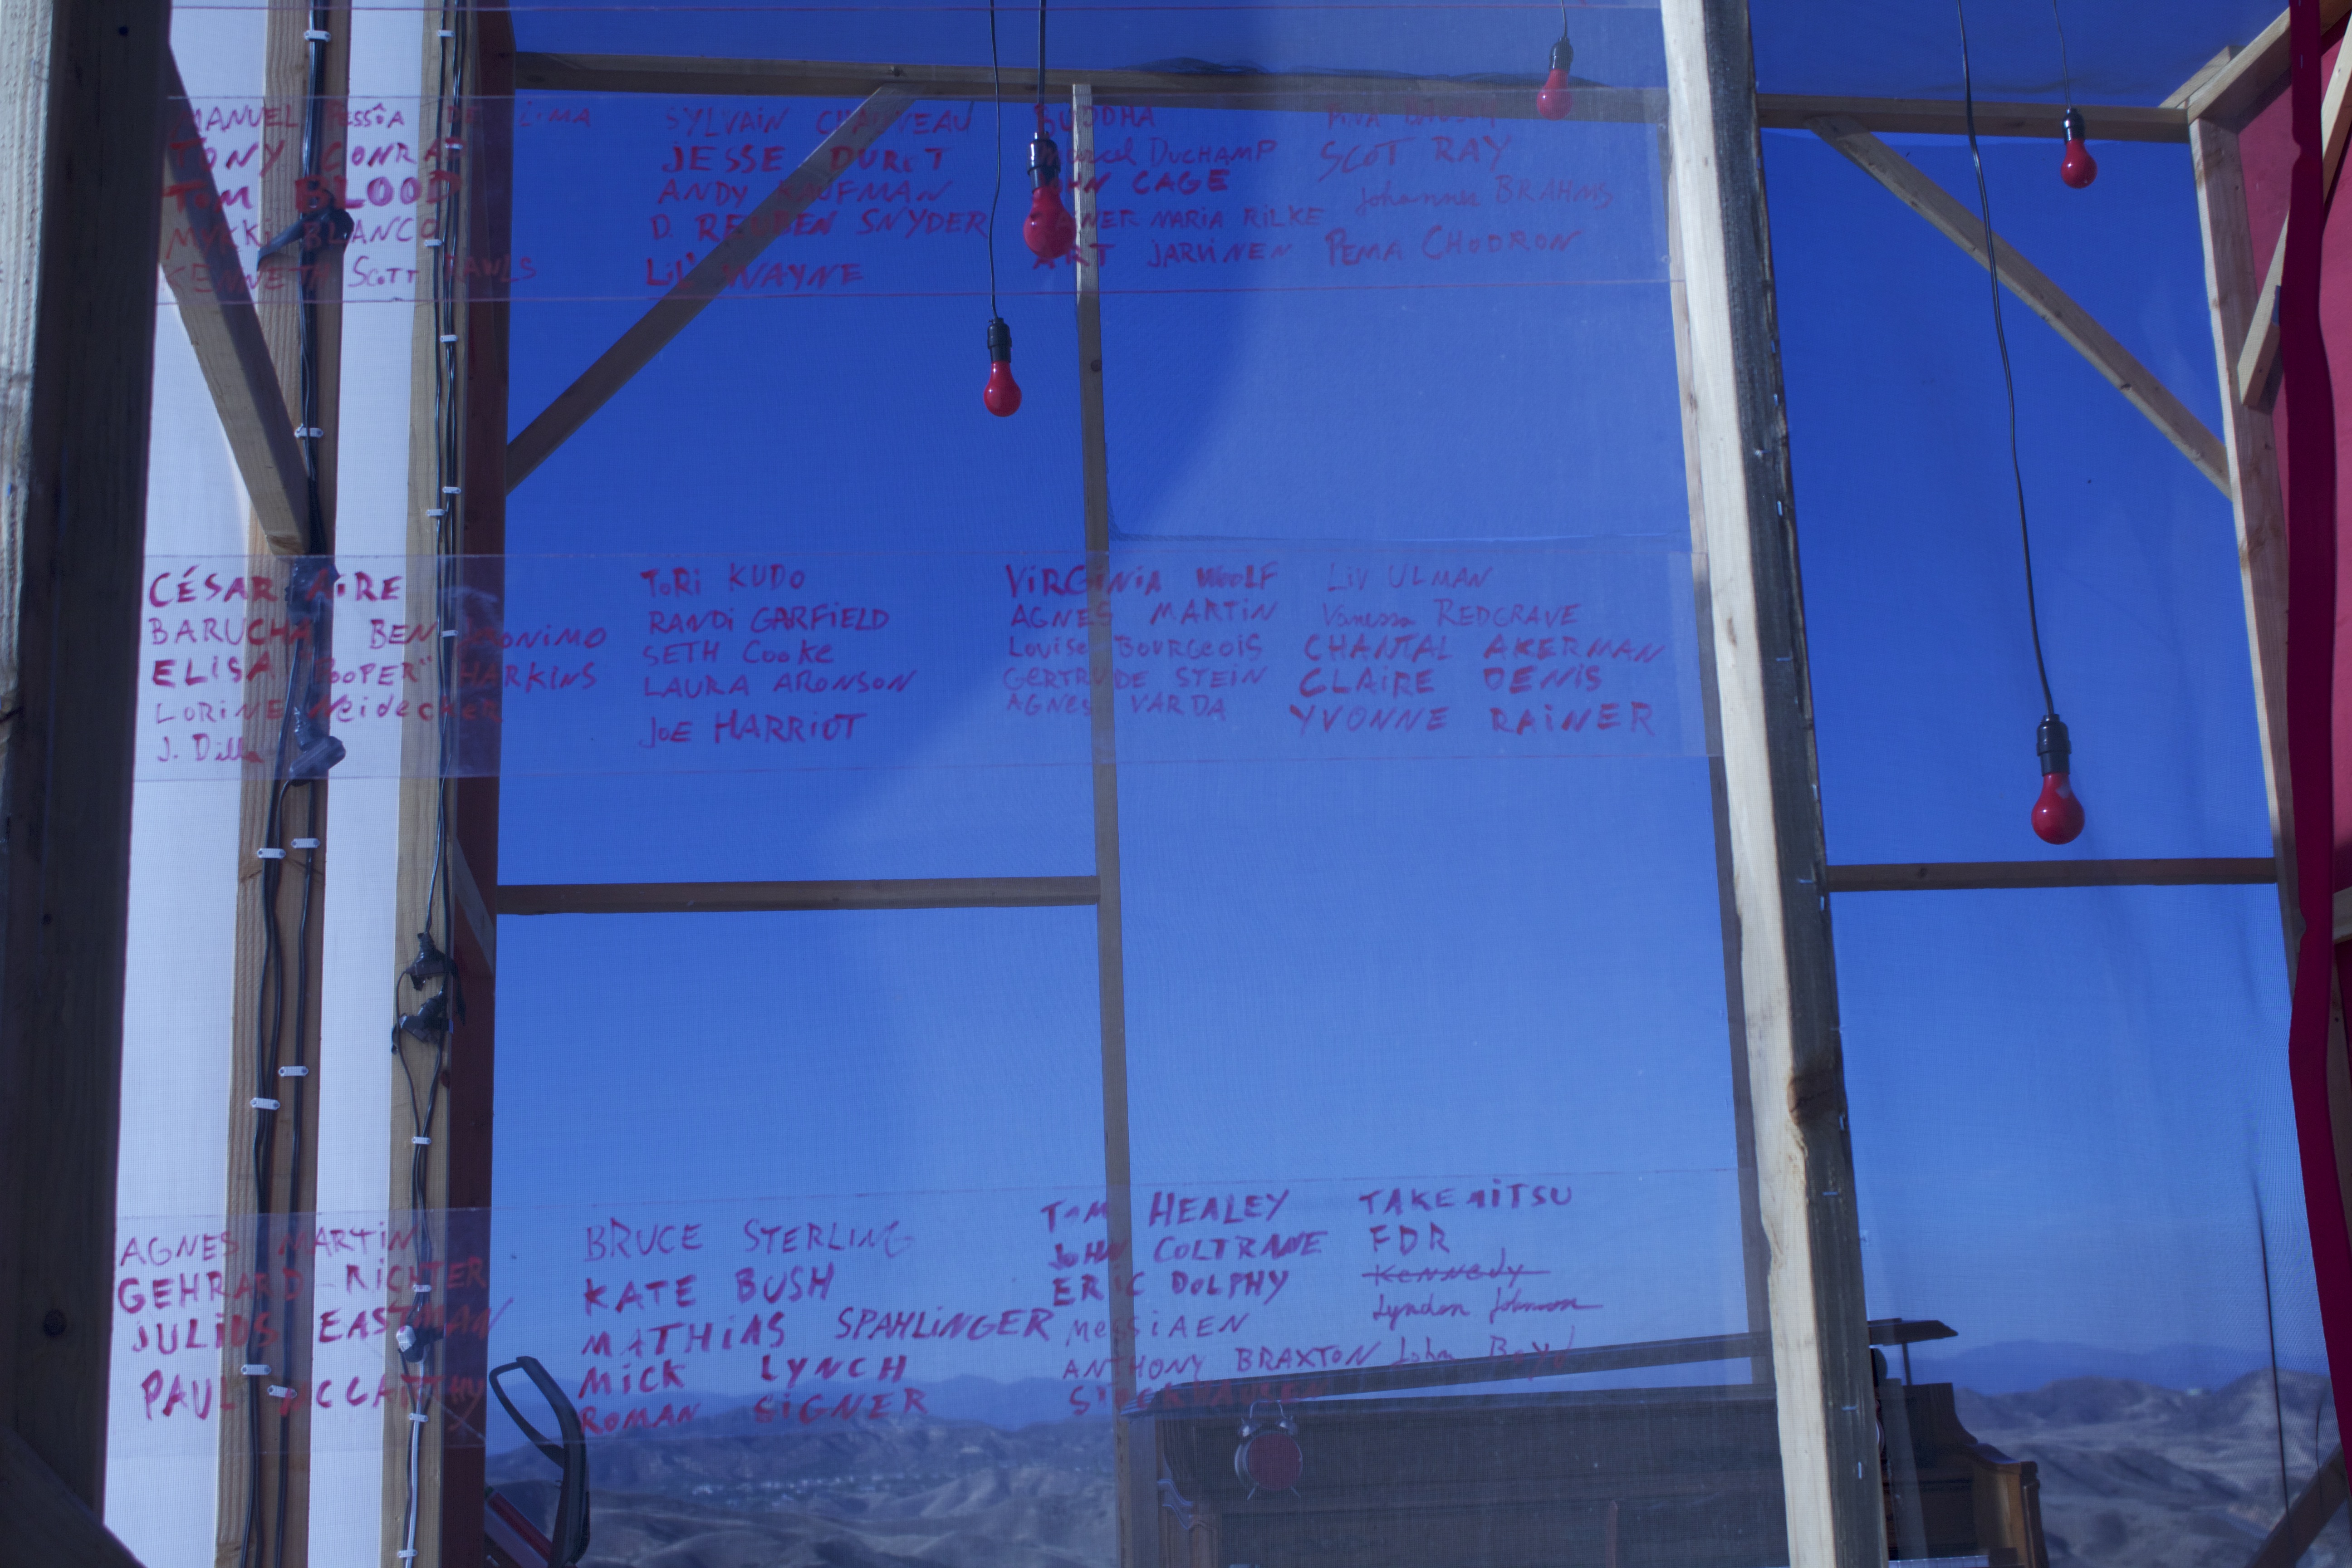 MANUEL PESSÔA DE LIMA
TONY CONRAD
TOM BLOOD
MYKKI BLANCO
KENNETH SCOTT RAWLS
SYLVAIN CHAUVEAU
JESSE DURET
ANDY KAUFMAN
D. REUBEN SNYDER
LiL' WAYNE
BUDDHA
Marcel DUCHAMP
JOHN CAGE
RAINER MARIA RILKE
ART JARVINEN
PINA BAUSCH
SCOT RAY
Johannes BRAHMS
PEMA CHODRON
CÉSAR AIRE
BARUCHA BEN
ELISA "POOPER" HARKINS
LORINE Neidecker
J. Dilla
TORI KUDO
RANDI GARFIELD
SETH COOKE
LAURA ARONSON
JOE HARRIOT
VIRGINIA WOOLF
AGNES MARTIN
Louise BOURGEOIS
GERTRUDE STEIN
AGNES VARDA
LIV ULMAN
Vanessa REDGRAVE
CHANTAL AKERMAN
CLAIRE DENIS
YVONNE RAINER
AGNES MARTIN
GEHRARD RICHTER
JULIUS EASTMAN
PAUL MCCARTHY
BRUCE STERLING
KATE BUSH
MATHIAS SPAHLINGER
MICK LYNCH
ROMAN SIGNER
TOM HEALEY
JOHN COLTRANE
ERIC DOLPHY
MESSIAEN
ANTHONY BRAXTON
STOCKHAUSEN
TAKEMITSU
FDR
Kennedy
Lyndon Johnson
John Boyd